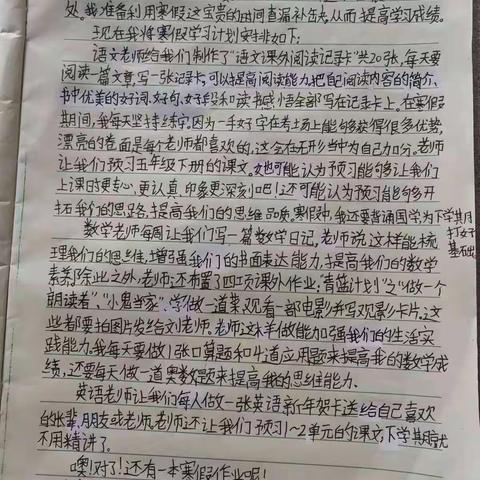 处。我准备利用寒假这宝贵的时间查漏补缺,从而提高学习成绩。
现在我将寒假学习计划安排如下:
语文老师给我们制作了“语文课外阅读记录卡”共20张,每天要
阅读一篇文章,写一张记录卡,可以提高阅读能力,把自己阅读内容的简介、
书中优美的好词、好句、好段和读书感悟全部写在记录卡上。在寒假
期间,我每天坚持练字。因为一手好字在考场上能够获得很多优势,
漂亮的卷面是每个老师都喜欢的,这会在无形当中为自己加分。老师
让我们预习五年级下册的课文。她可能认为预习能够让我们
上课时更专心、更认真,印象更深刻吧!还可能认为预习能够开
拓我们的思路,提高我们的思维品质。寒假中,我还要背诵国学为下学期
打好
基础
数学老师每周让我们写一篇数学日记,老师说这样能梳
理我们的思维,增强我们的书面表达能力,提高我们的数学
素养。除此之外,老师还布置了四项课外作业:青蓝计划”之“做一个
朗读者”、“小鬼当家”、学做一道菜、观看一部电影并写观影卡片。这
些都要拍图片发给刘老师。老师这样做能加强我们的生活实
践能力。我每天要做1张口算题和4道应用题来提高我的数学成
绩,还要每天做一道奥数题来提高我的思维能力。
英语老师让我们每人做一张英语新年贺卡送给自己喜欢
的长辈、朋友或老师,老师还让我们预习1~2单元的课文,下学期就
不用精讲了。
噢!对了!还有一本寒假作业呢!